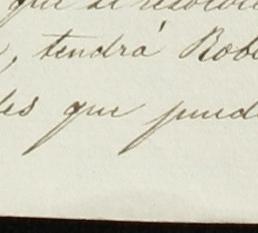 que se
, tendrá Robe
les que pued